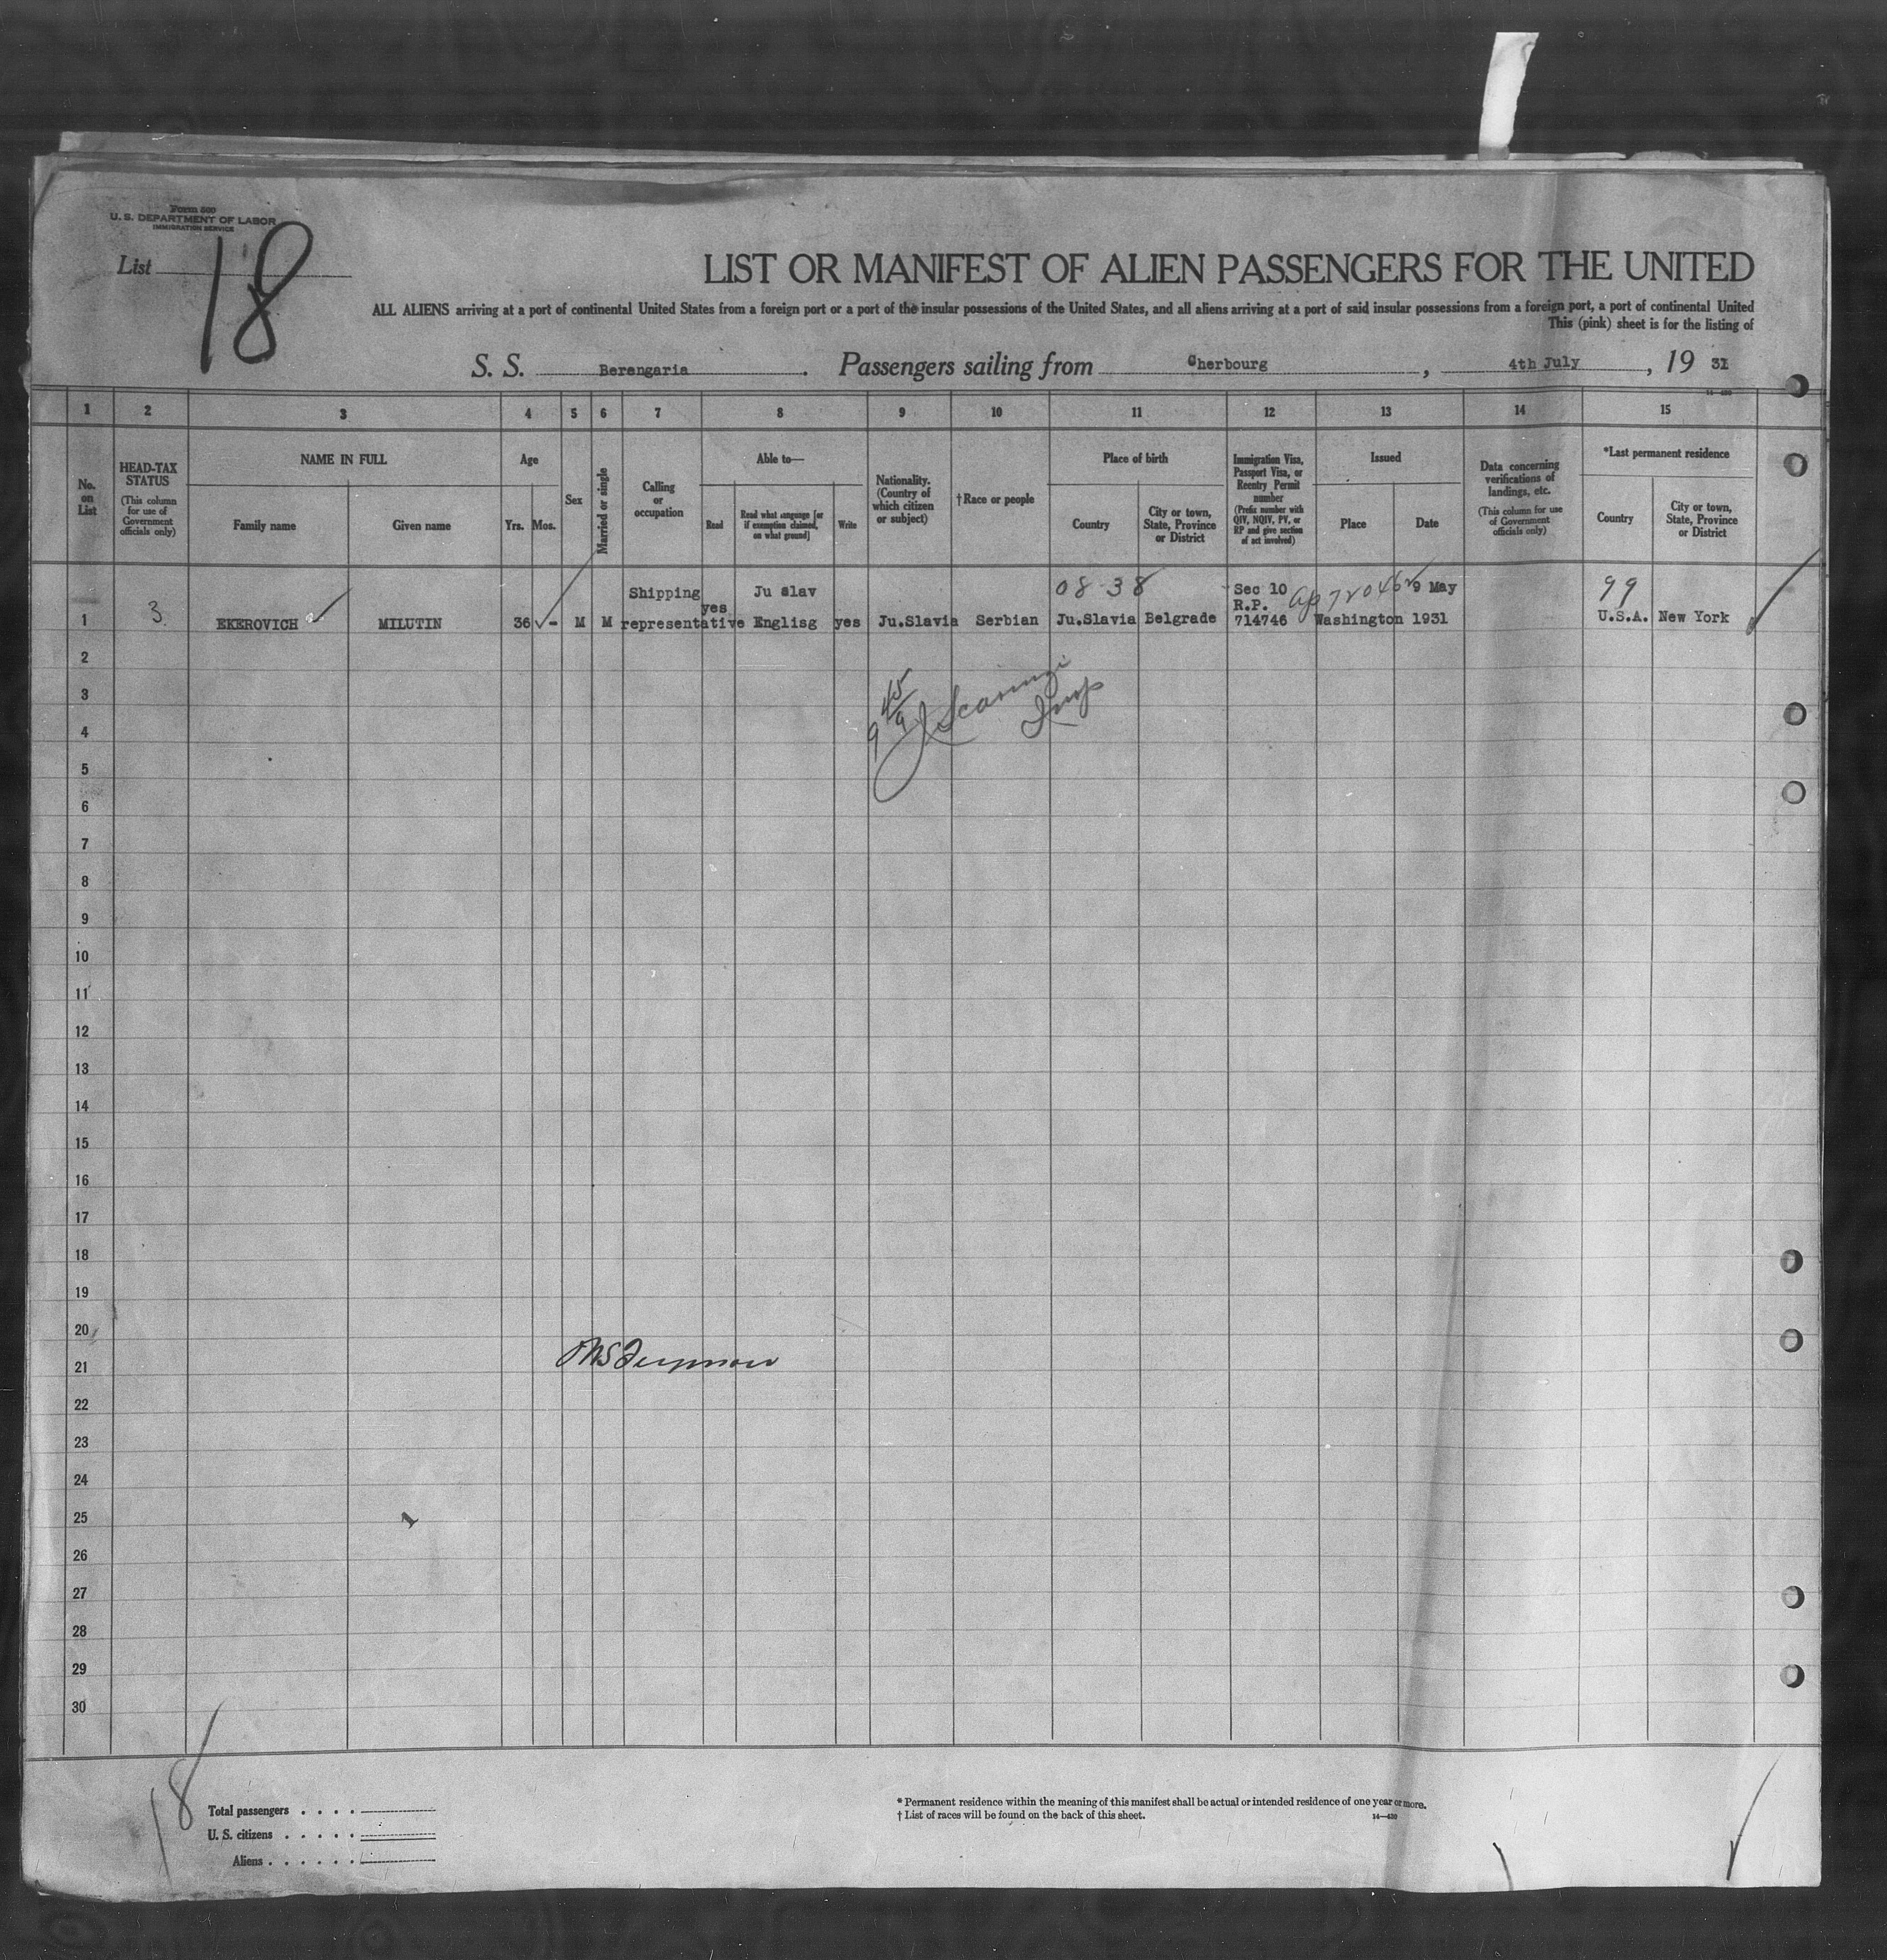 Form 500
U. S. DEPARTMENT OF LABOR
IMMIGRATION SERVICE
List 18
LIST OR MANIFEST OF ALIEN PASSENGERS FOR THE UNITED
ALL ALIENS arriving at a port of continental United States from a foreign port or a port of the insular possessions of the United States, and all aliens arriving at a port of said insular possessions from a foreign port, a port of continental United
This (pink) sheet is for the listing of
S. S. Berengaria . Passengers sailing from Cherbourg , 4th July , 19 31
1 2 3 4 5 6 7 8 9 10 11 12 13 14 15
No. on List
HEAD-TAX STATUS (This column for use of Government officials only)
NAME IN FULL
Family name
Given name
Age
Yrs. Mos.
Sex
Married or single
Calling or occupation
Able to—
Read
Read what language [or if exemption claimed, on what ground]
Write
Nationality. (Country of which citizen or subject)
†Race or people
Place of birth
Country
City or town, State, Province or District
Immigration Visa, Passport Visa, or Reentry Permit number (Prefix number with QIV, NQIV, PV, or RP and give section of act involved)
Issued
Place
Date
Data concerning verifications of landings, etc. (This column for use of Government officials only)
*Last permanent residence
Country
City or town, State, Province or District
08-38 99
Shipping Ju Slav Sec 10 9 May
yes R.P.
1 3 EKEROVICH MILUTIN 36 - M M representative Englisg yes Ju.Slavia Serbian Ju.Slavia Belgrade 714746 Washington 1931 U.S.A. New York
2
3
4
5
6
7
8
9
10
11
12
13
14
15
16
17
18
19
20
21
22
23
24
25 1
26
27
28
29
30
18
Total passengers . . . .
U. S. citizens . . . . .
Aliens . . . . . .
* Permanent residence within the meaning of this manifest shall be actual or intended residence of one year or more.
† List of races will be found on the back of this sheet.
14—430